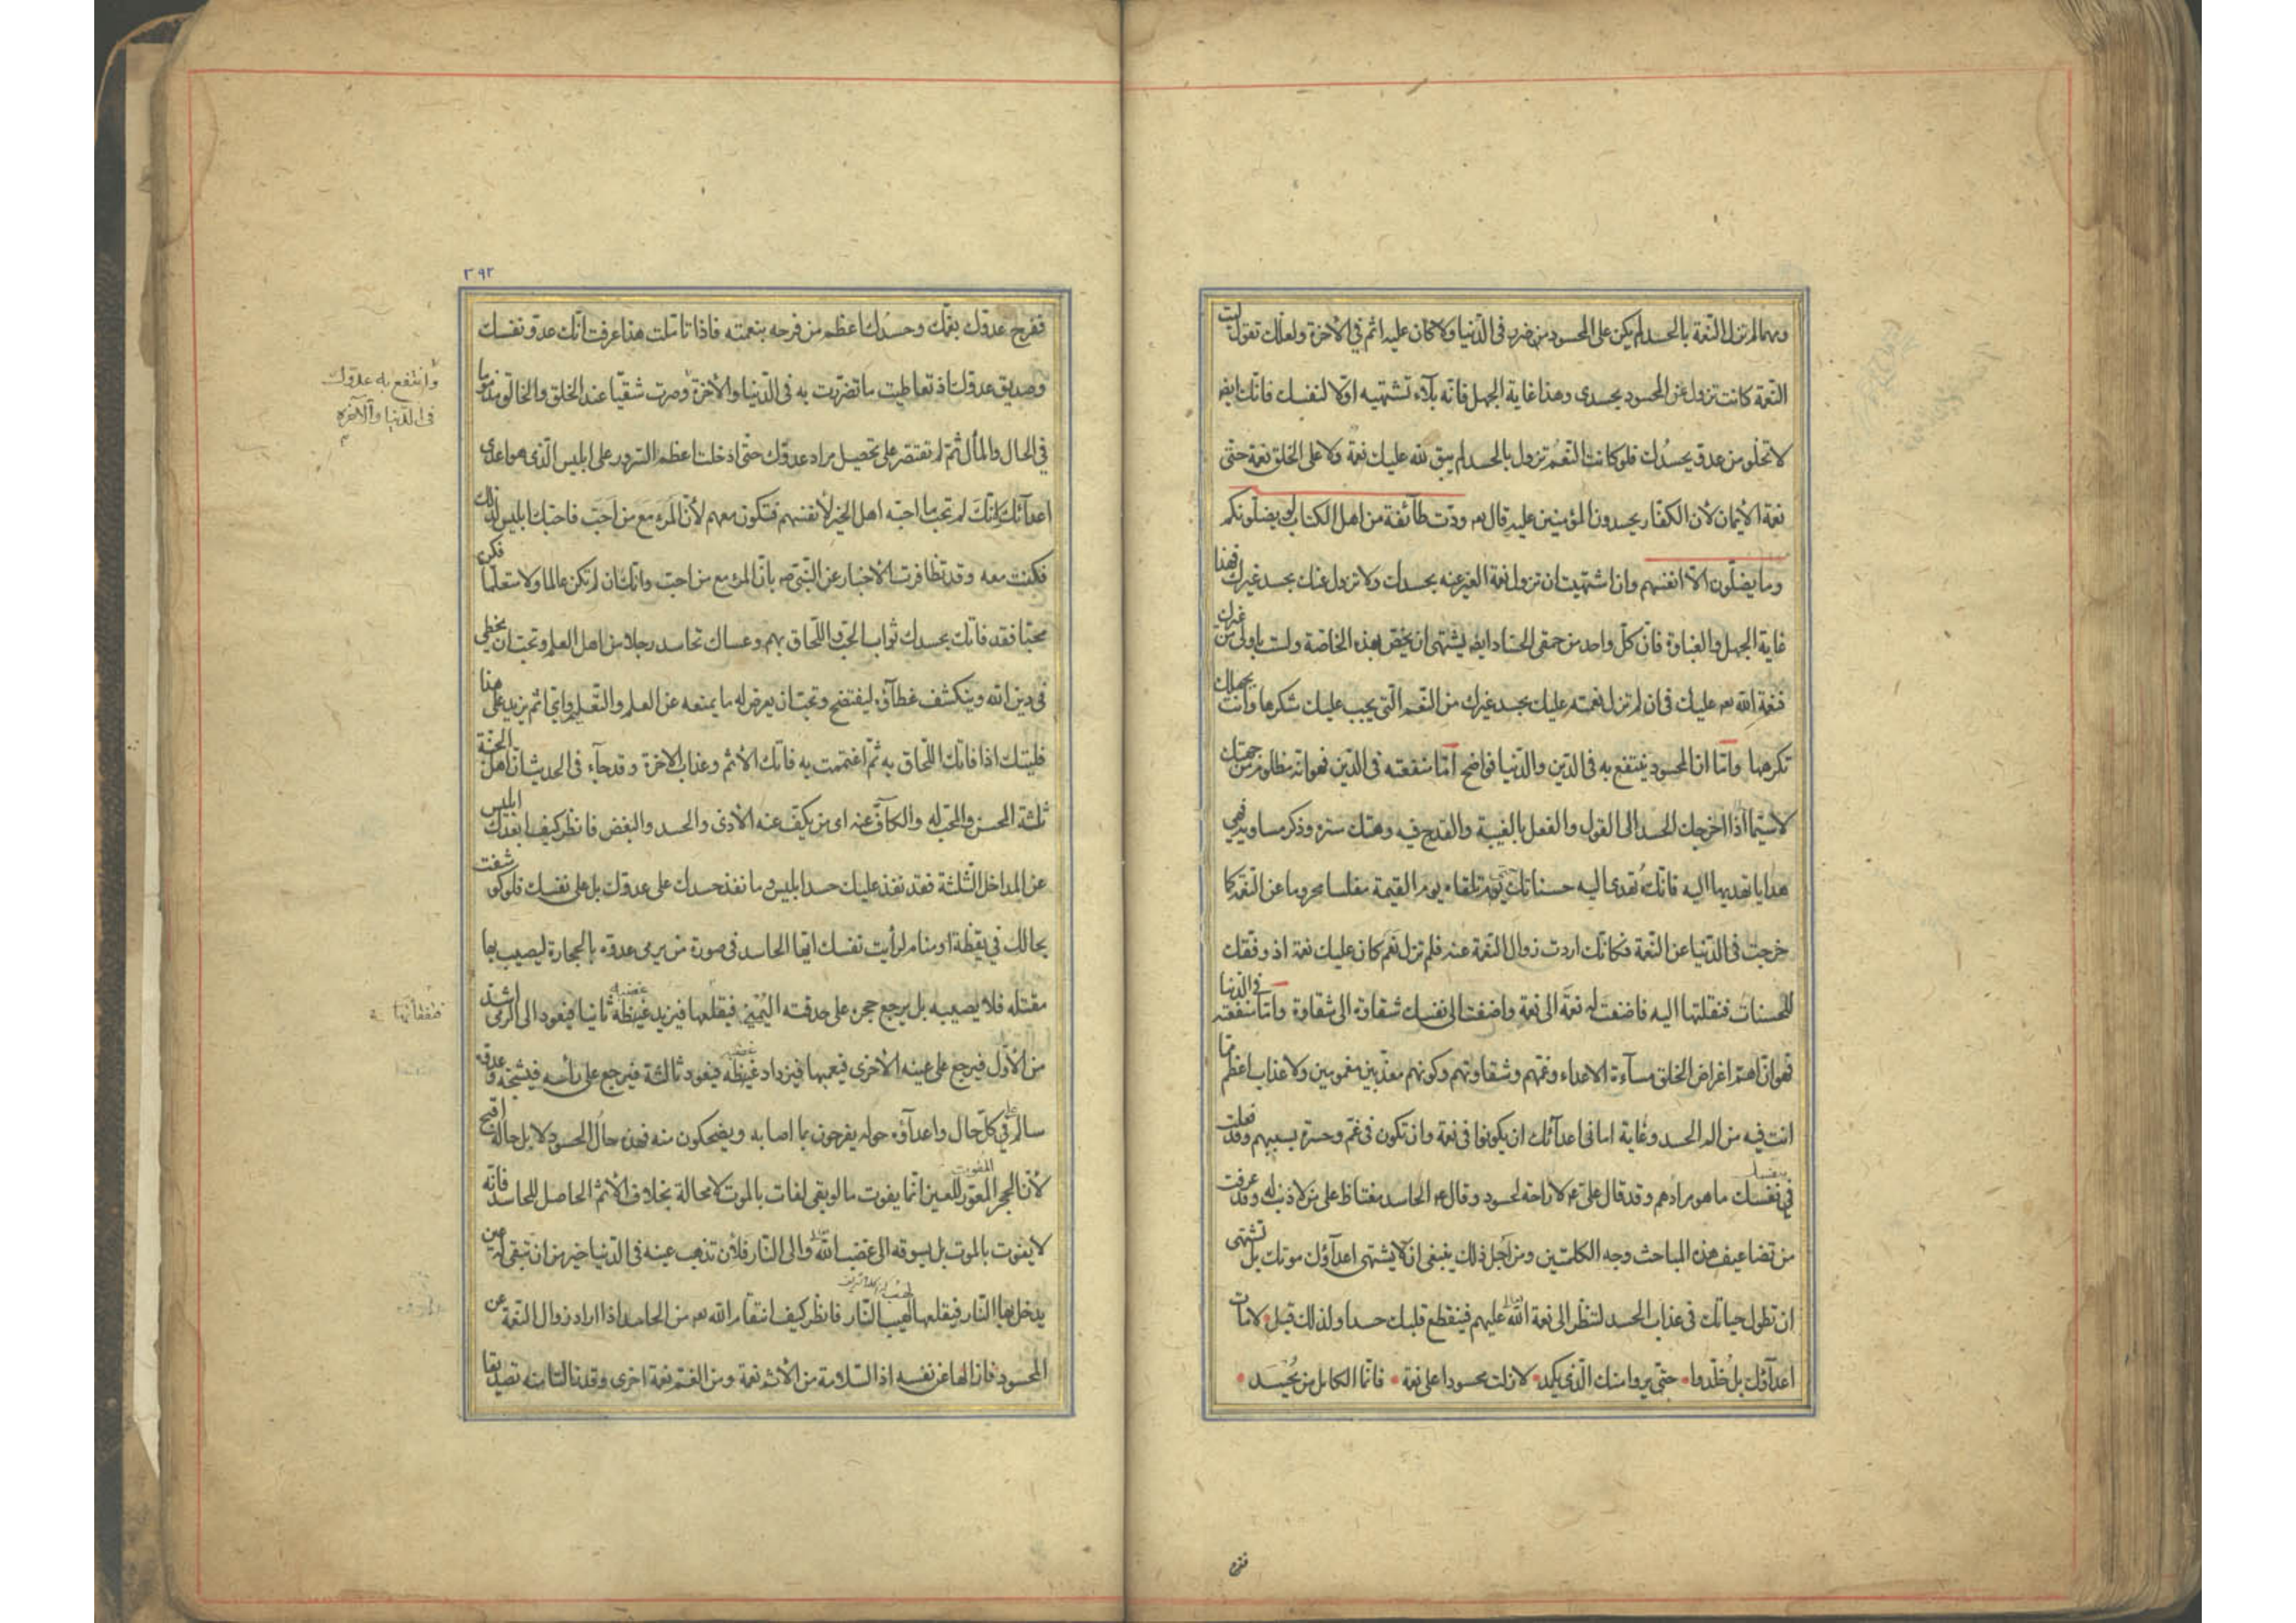 ومهما لم تزل النعمة بالحسد لم يكن على المحسود من ضرر فى الدّنيا ولا كان عليه اثم فى الآخرة ولعلّك تقول ليت
النّعمة كانت تزول عن المحسود بحسدى وهذا غاية الجهل فانّه بلآء تشتهيه اوّلا لنفسك فانّك ايضا
لا تخلو من عدوّ يحسدك فلو كانت النّعم تزول بالحسد لم يبق لله عليك نعمة ولا على الخلق نعمة حتّى
نعمة الأيمان لأن الكفّار يحسدون المؤمنين عليه قال تع ودّت طآئفة من اهل الكتاب لو يضلّونكم
وما يضلّون الاّ انفسهم وان اشتهيت ان تزول نعمة الغير عنه بحسدك ولا تزول عنك بحسد غيرك فهذا
غاية الجهل والغباوة فانّ كلّ واحد من حمقى الحسّاد ايضا يشتهى ان يخصّ بهذه الخاصّة ولست باولى من غيرك
فنعمة الله تع عليك فى ان لم تزل نعمته عليك بحسد غيرك من النّعم الّتى يجب عليك شكرها وانت بجهلك
تكرهها وامّا انّ المحسود ينتفع به فى الدّين والدّنيا فواضح امّا منفعته فى الدّين فهو انّه مظلوم من جهتك
لا سيّما اذا اخرجك الحسد الى القول والفعل بالغيبة والقدح فيه وهتك ستره وذكر مساويه فهى
هدايا تهديها اليه فانّك تهدى اليه حسناتك حتّى تلقاه يوم القيمة مفلسا محروما عن النّعمة كما
خرجت فى الدّنيا عن النّعمة فكانّك اردت زوال النّعمة عنه فلم تزل نعم كان عليك نعمة اذ وفّقك
للحسنات فنقلتها اليه فاضفت له نعمة الى نعمة واضفت الى نفسك شقاوة الى شقاوة وامّا منفعته فى الدّنيا
فهو انّ اهمّ اغراض الخلق مسآءة الاعداء وغمّهم وشقاوتهم وكونهم معذّبين مغمومين ولا عذاب اعظم ممّا
انت فيه من الم الحسد وغاية امانى اعدآئك ان يكونوا فى نعمة وان تكون فى غمّ وحسرة بسببهم وقد فعلت
فى نفسك ما هو مرادهم وقد قال علىّ ع لا راحة لحسود وقال ع الحاسد مغتاظ على من لا ذنب له وقد عرفت
من تضاعيف هذه المباحث وجه الكلمتين ومن اجل ذلك ينبغى ان لا يشتهى اعدآؤك موتك بل تشتهى
ان تطول حياتك فى عذاب الحسد لتنظر الى نعمة الله عليهم فينقطع قلبك حسدا ولذلك قيل لامات
اعدآؤك بل خلّدوا حتّى يروا منك الّذى يكمد لا زلت محسودا على نعمة فانّما الكامل من يحسد
٣٩٢
ففرح عدوّك بغمّك وحسدك اعظم من فرحه بنعمته فاذا تأمّلت هذا عرفت انّك عدوّ نفسك
وصديق عدوّك اذ تعاطيت ما تضرّرت به فى الدّنيا والآخرة وصرت شقيّا عند الخلق والخالق مذموما
وانتفع به عدوّك
فى الدّنيا والآخره
فى الحال والمآل ثمّ لم تقتصر على تحصيل مراد عدوّك حتّى ادخلت اعظم السّرور على ابليس الّذى هو اعدى
اعدآئك لانّك لم تحبّ ما احبّه اهل الخير لأنفسهم فتكون معهم لأنّ المرء مع من احبّ فاحبّك ابليس لذلك
فكنت معه وقد تظافرت الأخبار عن النّبىّ ص بانّ المرء مع من احبّ وانّك ان لم تكن عالما ولا متعلّما فكن
محبّا فقد فاتك بحسدك ثواب الحبّ واللّحاق بهم وعساك تحاسد رجلا من اهل العلم وتحبّ ان يخطى
فى دين الله وينكشف غطآؤه ليفتضح وتحبّ ان يعرض له ما يمنعه عن العلم والتّعليم واىّ اثم يزيد على هذا
فليتك اذا فاتك اللّحاق به ثمّ اغتممت به فاتك الأثم وعذاب الآخرة وقد جآء فى الحديث انّ اهل الجنّة
ثلثة المحسن والمحبّ له والكآفّ عنه اى من يكفّ عنه الأذى والحسد والبغض فانظر كيف ابعدك ابليس
عن المداخل الثّلثة فقد نفذ عليك حسد ابليس وما نفذ حسدك على عدوّك بل على نفسك فلو كوشفت
بحالك فى يقظة او منام لرأيت نفسك ايّها الحاسد فى صورة من يرمى عدوّه بالحجارة ليصيب بها
مقتله فلا يصيبه بل يرجع حجره على حدقته اليمنى فيقلعها فيزيد غيظه ثانيا فيعود الى الرّمى اشدّ
غضبه
من الأوّل فيرجع على عينه الأخرى فيعميها فيزداد غيظه فيعود ثالثة فيرجع على رأسه فيشجّه وعدوّه
سالم فى كلّ حال واعدآؤه حوله يفرحون بما اصابه ويضحكون منه فهذه حال الحسود لا بل حاله اقبح
لأنّ الحجر المعوّر للعين انّما يفوت ما لو بقى لفات بالموت لا محالة بخلاف الأثم الحاصل للحاسد فانّه
المفوت
لا يفوت بالموت بل يسوقه الى غضب الله والى النّار فلأن تذهب عينه فى الدّنيا خير من ان تبقى له عين
يدخل بها النّار فيقلعها لهيب النّار فانظر كيف انتقام الله تع من الحاسد اذا اراد زوال النّعمة عن
المحسود فازالها عن نفسه اذ السّلامة من الأثم نعمة ومن الغمّ نعمة اخرى وقد زالتا منه تصديقا